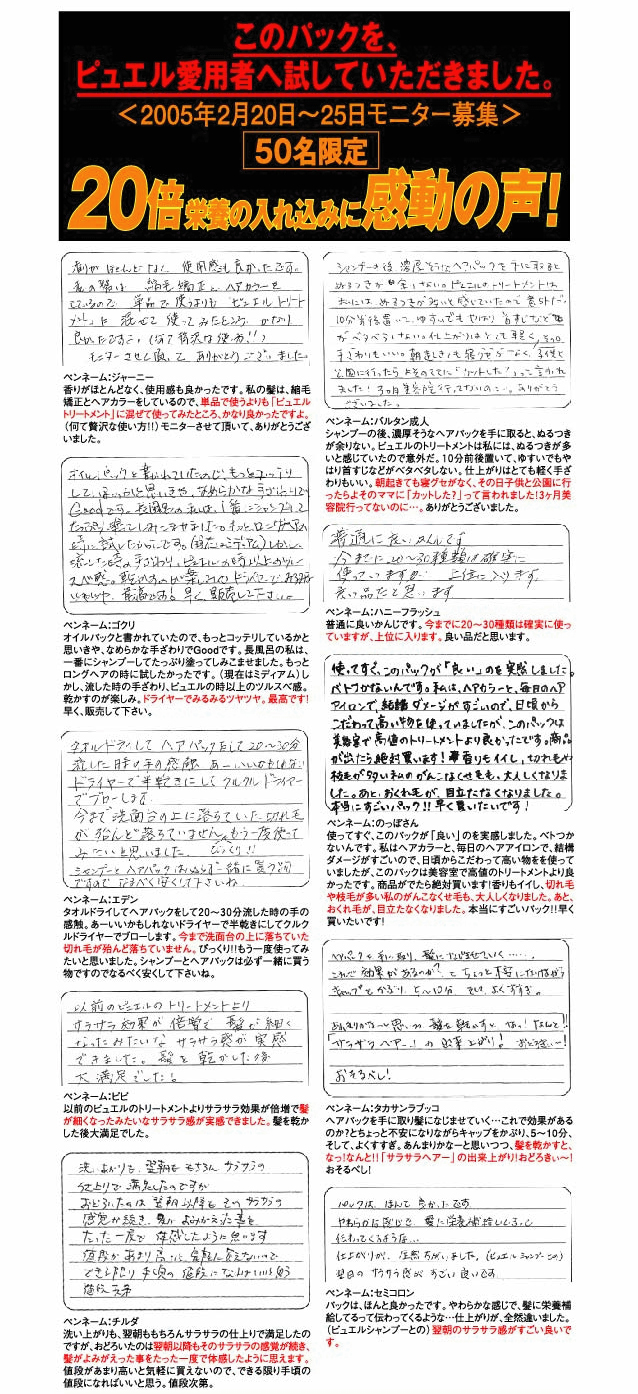 このパックを、
ピュエル愛用者へ試していただきました。
＜2005年2月20日～25日モニター募集＞
50名限定
20倍栄養の入れ込みに感動の声!
香りがほとんどなく 使用感も良かったです。
ペンネーム:ジャーニー
香りがほとんどなく、使用感も良かったです。私の髪は、縮毛
矯正とヘアカラーをしているので、単品で使うよりも「ピュエル
トリートメント」に混ぜて使ってみたところ、かなり良かったですよ。
（何て贅沢な使い方!!）モニターさせて頂いて、ありがとうござ
いました。
ペンネーム:ゴクリ
オイルパックと書かれていたので、もっとコッテリしているかと
思いきや、なめらかな手ざわりでGoodです。長風呂の私は、
一番にシャンプーしてたっぷり塗ってしみこませました。もっと
ロングヘアの時に試したかったです。（現在はミディアム）しか
し、流した時の手ざわり、ピュエルの時以上のツルスベ感。
乾かすのが楽しみ。ドライヤーでみるみるツヤツヤ。最高です!
早く、販売して下さい。
ペンネーム:エデン
タオルドライしてヘアパックをして20～30分流した時の手の
感触。あーいいかもしれないドライヤーで半乾きにしてクルク
ルドライヤーでブローします。今まで洗面台の上に落ちていた
切れ毛が殆んど落ちていません。びっくり!!もう一度使ってみ
たいと思いました。シャンプーとヘアパックは必ず一緒に買う
物ですのでなるべく安くして下さいね。
以前のピュエルのトリートメントより
サラサラ効果が倍増で 髪が細く
なったみたいな サラサラ感が実感
できました。髪を乾かした後
大満足でした!
ペンネーム:ビビ
以前のピュエルのトリートメントよりサラサラ効果が倍増で髪
が細くなったみたいなサラサラ感が実感できました。髪を乾か
した後大満足でした。
ペンネーム:チルダ
洗い上がりも、翌朝ももちろんサラサラの仕上りで満足したの
ですが、おどろいたのは翌朝以降もそのサラサラの感覚が続き、
髪がよみがえった事をたった一度で体感したように思えます。
値段があまり高いと気軽に買えないので、できる限り手頃の
値段になればいいと思う。値段次第。
ペンネーム:バルタン成人
シャンプーの後、濃厚そうなヘアパックを手に取ると、ぬるつき
が余りない。ピュエルのトリートメントは私には、ぬるつきが多
いと感じていたので意外だ。10分前後置いて、ゆすいでもや
はり首すじなどがベタベタしない。仕上がりはとても軽く手ざ
わりもいい。朝起きても寝グセがなく、その日子供と公園に行っ
たらよそのママに「カットした?」って言われました!3ヶ月美
容院行ってないのに…。ありがとうございました。
普通に良いかんじです
今までに20～30種類は確実に
使っていますが 上位に入ります
良い品だと思います
ペンネーム:ハニーフラッシュ
普通に良いかんじです。今までに20～30種類は確実に使っ
ていますが、上位に入ります。良い品だと思います。
使ってすぐ、このパックが「良い」のを実感しました。
ベトつかないんです。私は、ヘアカラーと、毎日のヘア
アイロンで、結構ダメージがすごいので、日頃から
こだわって高い物を使っていましたが、このパックは
美容室で高値のトリートメントより良かったです。商品
が出たら絶対買います!香りもイイし、切れ毛や
枝毛が多い私のがんこなくせ毛も、大人しくなりまし
た。あと、おくれ毛が、目立たなくなりました。
本当にすごいパック!!早く買いたいです!
ペンネーム:のっぽさん
使ってすぐ、このパックが「良い」のを実感しました。ベトつか
ないんです。私はヘアカラーと、毎日のヘアアイロンで、結構
ダメージがすごいので、日頃からこだわって高い物を使って
いましたが、このパックは美容室で高値のトリートメントより良
かったです。商品がでたら絶対買います!香りもイイし、切れ毛
や枝毛が多い私のがんこなくせ毛も、大人しくなりました。あと、
おくれ毛が、目立たなくなりました。本当にすごいパック!!早く
買いたいです!
ペンネーム:タカサンラブッコ
ヘアパックを手に取り髪になじませていく…これで効果がある
のか?とちょっと不安になりながらキャップをかぶり、5～10分、
そして、よくすすぎ。あんまりかなーと思いつつ、髪を乾かすと、
なっ!なんと!!「サラサラヘアー」の出来上がり!おどろきぃ～!
おそるべし!
ペンネーム:セミコロン
パックは、ほんと良かったです。やわらかな感じで、髪に栄養補
給してるって伝わってくるような…仕上がりが、全然違いました。
（ピュエルシャンプーとの）翌朝のサラサラ感がすごい良いで
す。